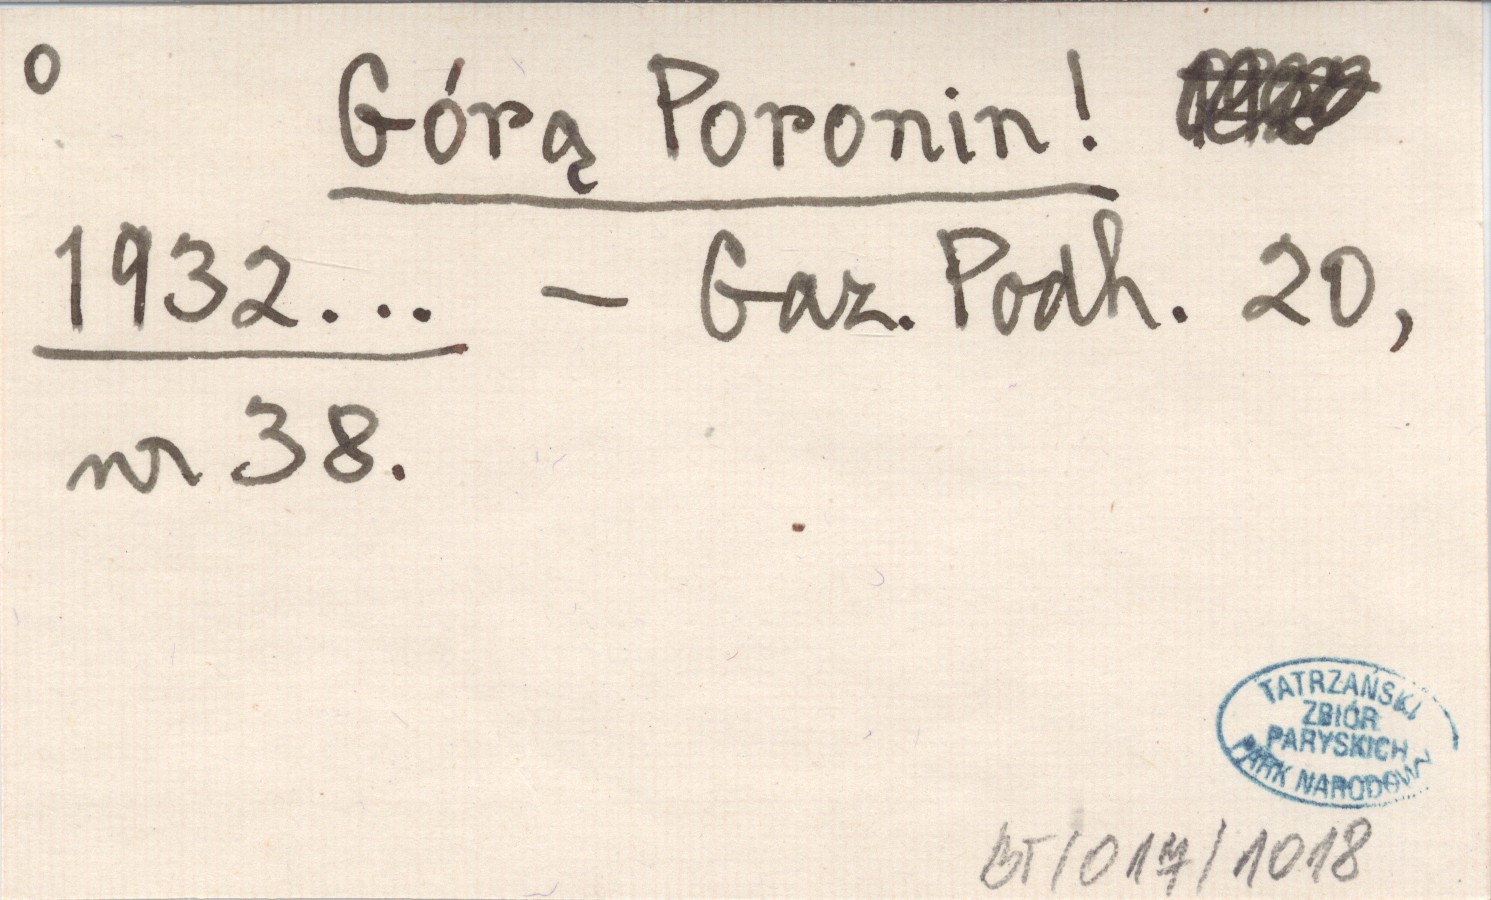 o Górą Poronin!
1932... — Gaz. Podh. 20,
nr 38.
TATRZAŃSKI
ZBIÓR
PARYSKICH
PARK NARODOWY
BT/017/1018